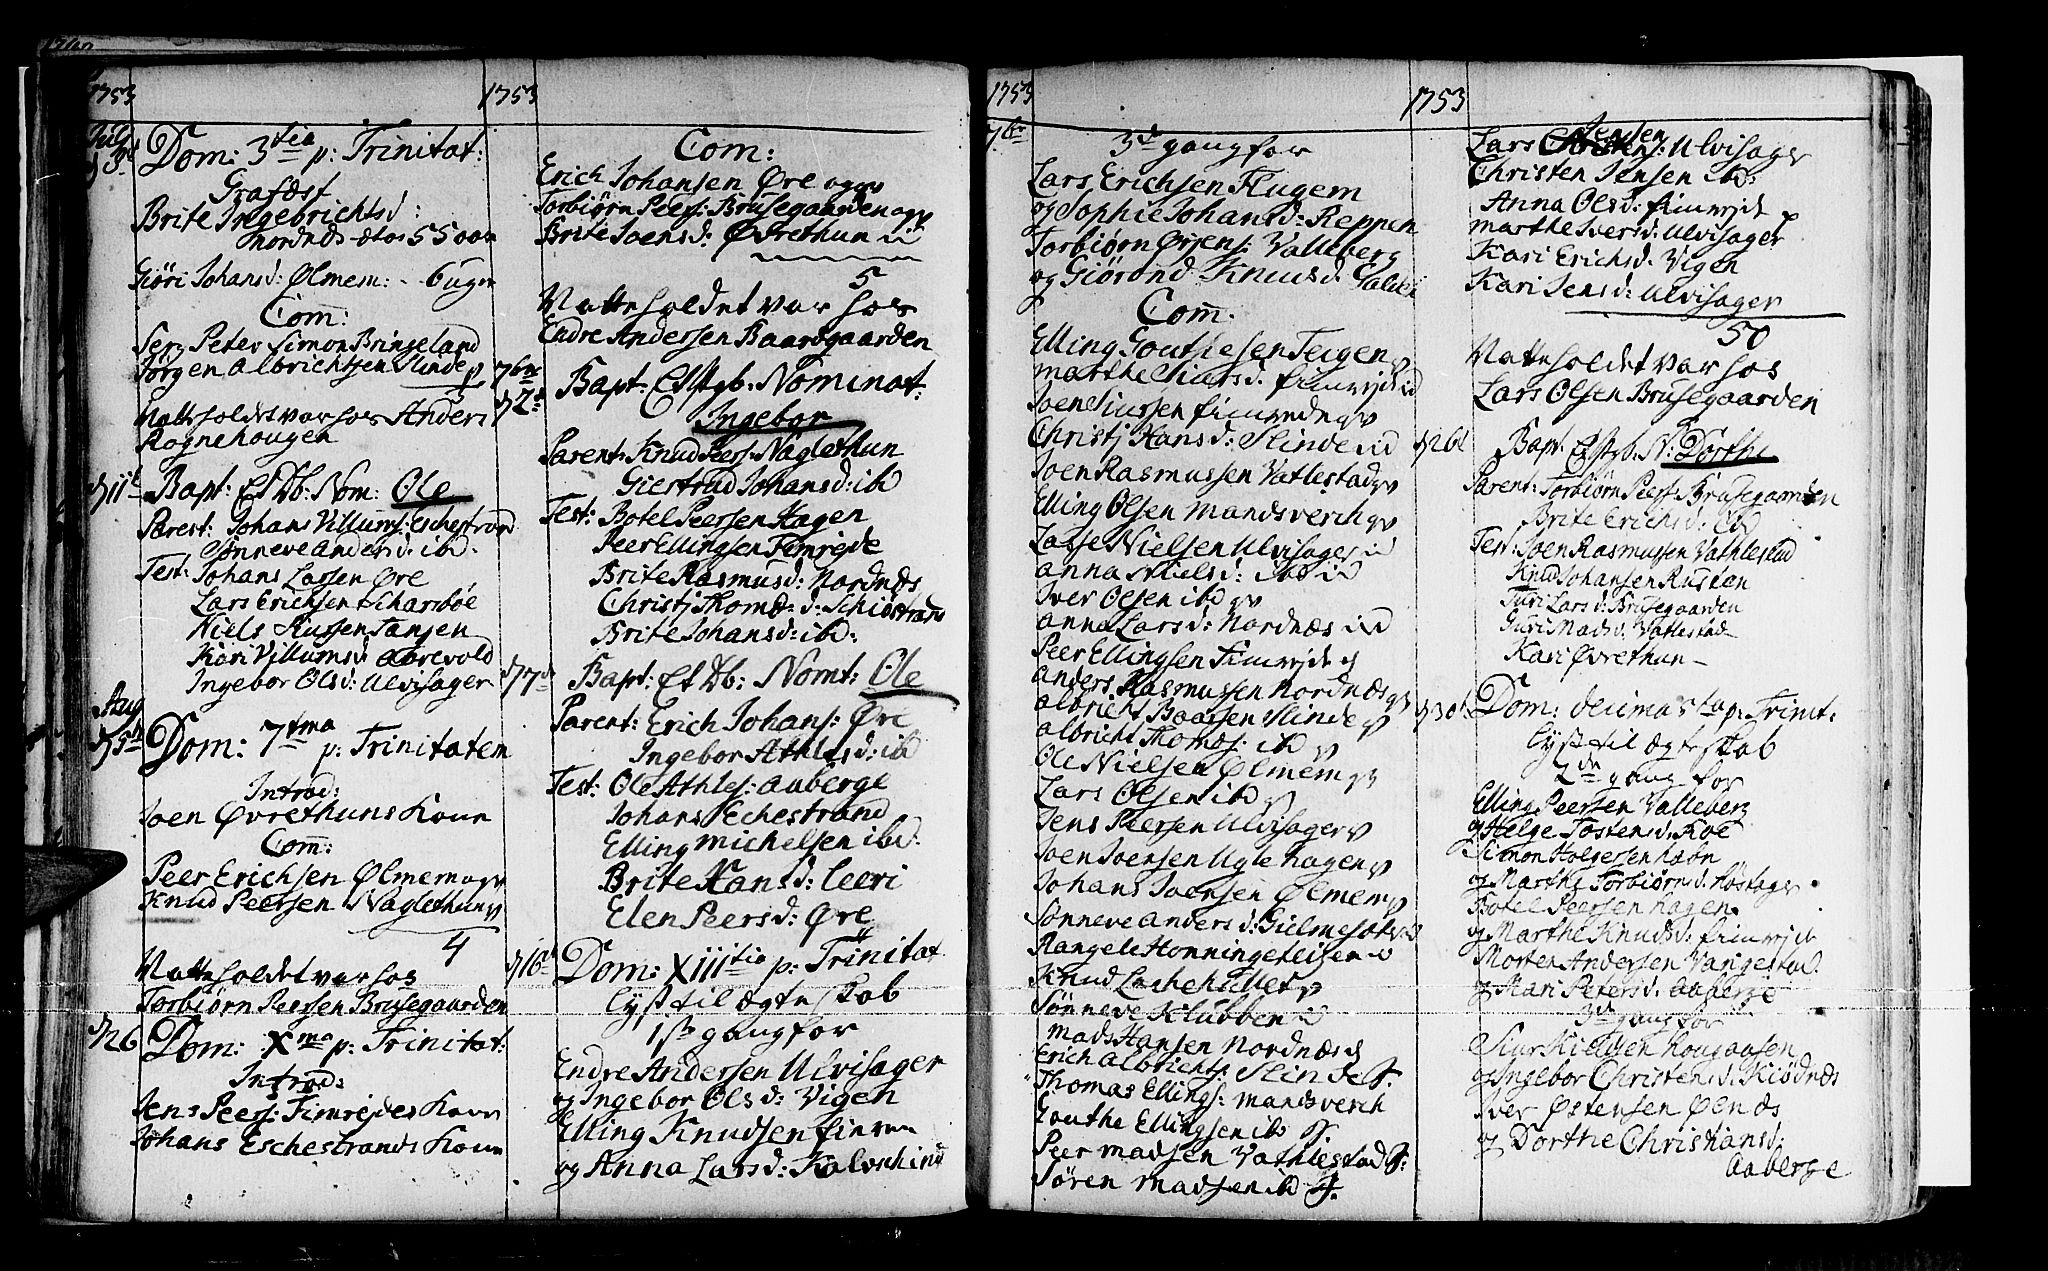 1753
Julj
Dom: 3tia p: Trinitat:
Grafæst
Brite Ingebrichtsd:
Nordnæs ætat 55 aar
Giøri Johansd: Ølmem: 6 uger
Com:
Serg Peter Simon Bringeland
Jørgen Albrichtsen Slinde
Natteholdet var hos Anders
Rognehougen
d 11t Bapt: Et Db: Nom: Ole
Parent: Johans Villumsen Eschestrand
Sønneve Andersd: ibd:
Test: Johans Larsen Øre
Lars Erichsen Scharsbøe
Niels
Kari Villumsd: Aarevold
Ingebor Olsd: Ulvisager
Aug
d 5t Dom: 7tma p: Trinitatem
Introd:
Joen Øvrethuns Kone
Com:
Peer Erichsen Ølmem
Knud Peersen Naglethun
4
Natteholdet var hos
Torbiørn Peersen Brusegaarden
d 26 Dom: Xma p: Trinitat:
Introd:
Jens Peers: Fimrejdes Kone
Johans Eschestrands Kone
1753
Com:
Erich Johansen Øre
Torbiørn Peers: Brusegaarden
Brite Joensd: Øvrethun
5
Natteholdet var hos
Endre Andersen Baardgaarden
7br
d 2 Bapt: Et Stgb: Nominat:
Ingebor
Parent: Knud Peers: Naglethun
Giertrud Johansd: ibd
Test: Botel Peersen Hagen
Peer Ellingsen Fimrejde
Brite Rasmusd: Nordnæs
Christj Thomæd: Schiestrand
Brite Johansd: ibd:
d 7d Bapt: Et Db: Nomt: Ole
Parent: Erich Johans: Øre
Ingebor Athlesd: ibd
Test: Ole Athles: Aaberge
Johans Echestrand
Elling Michelsen ibd.
Brite Hansd: Leeri
Elen Peersd: Øre
d 16d Dom: XIIItia p: Trinitat
Lyst til Ægteskab
1ste gang for
Endre Andersen Ulvisager
og Ingebor Olsd: Vigen
Elling Knudsen
og Anna Larsd: Kalvschin
1753
7br
3de gang for
Lars Erichsen Flugem
og Sophie Johansd: Reppen
Torbiørn Ørjens: Valleberg
og Giørond Knuusd:
Com.
Elling Gouthesen Teigen
Marthe Siursd: Fimrejde
Joen Siursen Fimrede
Christj Hansd: Slinde
Joen Rasmussen Vatlestad
Elling Olsen Mandsverch
Lasse Nielsen Ulvisager
Anna Nielsd: ibd
Iver Olsen ibd
Anna Larsd: Nordnæs
Peer Ellingsen Fimrejde
Anders Rasmussen Nordnæs
Albricht Baarsen Slinde
Albricht Thomæs: ibd
Ole Nielsen Ølmem
Lars Olsen ibd
Jens Peersen Ulvisager
Joen Joensen Uglehagen
Johans Iversen Ølmem
Sønneve Andersd: Gielmesæt
Rangele Honningeteisen
Knud Lachehillet
Sønneve Klubben
Mads Hansen Nordnæs
Erich Albrichts: Slinde
Thomas Ellings: Mandsverch
Gouthe Ellingsen ibd
Peer Madsen Vathlestad
Søren Madsen ibd
1753
Lars Jensen Ulvisager
Christen Jensen ibd:
Anna Olsd: Fimrejde
Marthe Iversd: Ulvisager
Kari Erichsd: Vigen
Kari Jensd: Ulvisager
50
Natteholdet var hos
Lars Olsen Brusegaarden
d 26t Bapt. Et Stgb. N: Dorthe
Parent: Torbiørn Peers: Brusegaarden
Brite Erichsd: ibd
Test: Joen Rasmussen Vathlestad
Knud Johansen Rustan
Turi Larsd: Brusegaarden
Guri Madsd: Vatlestad
Kari Øvrethun
d 30t Dom: decima 5ta p: Trinit:
Lyst til ægteskab
2de gang for
Elling Peersen Valleberg
og Helge Tostensd. Koe
Simon Holgersen
og Marthe Torbiørnsd: Høstager
Botel Peersen Hagen
og Marthe Knudsd: Fimrejde
Morten Andersen Vangestad
og Mari Petersd: Aaberge
3de gang for
Siur
og Ingebor Christensd: Kiødnæs
Iver Østensen Øenæs
og Dorthe Christiansd:
Aaberge